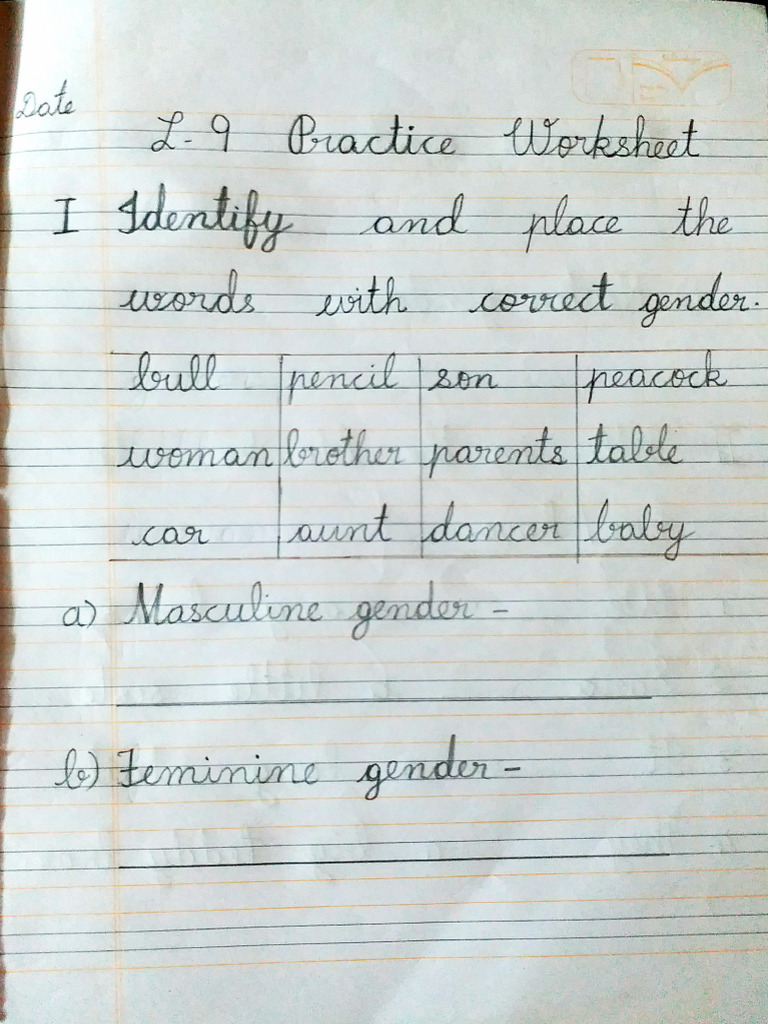 Date
L-9 Practice Worksheet
I Identify and place the
words with correct gender.
bull pencil son peacock
woman brother parents table
car aunt dancer baby
a) Masculine gender -
b) Feminine gender -